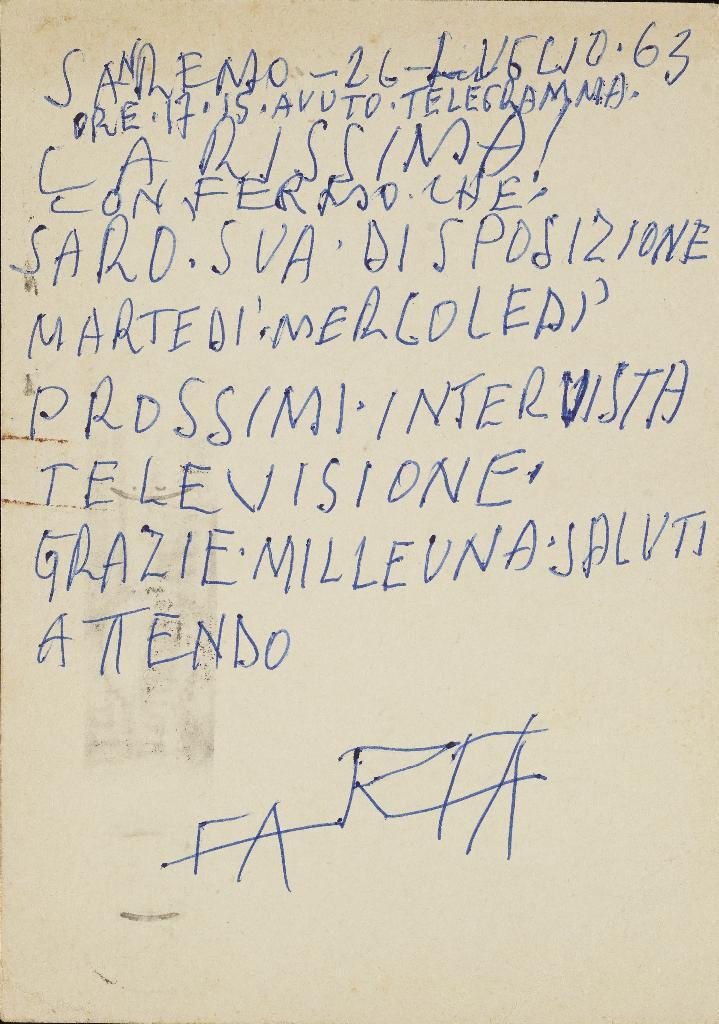 SANREMO - 26 - LUGLIO · 63
ORE · 17 · 15 · AVUTO · TELEGRAMMA ·
CARISSIMA!
CONFERMO · CHE ·
SARO · SUA · DISPOSIZIONE
MARTEDI' · MERCOLEDI'
PROSSIMI · INTERVISTA
TELEVISIONE ·
GRAZIE · MILLEUNA · SALUTI
ATTENDO
FARFA